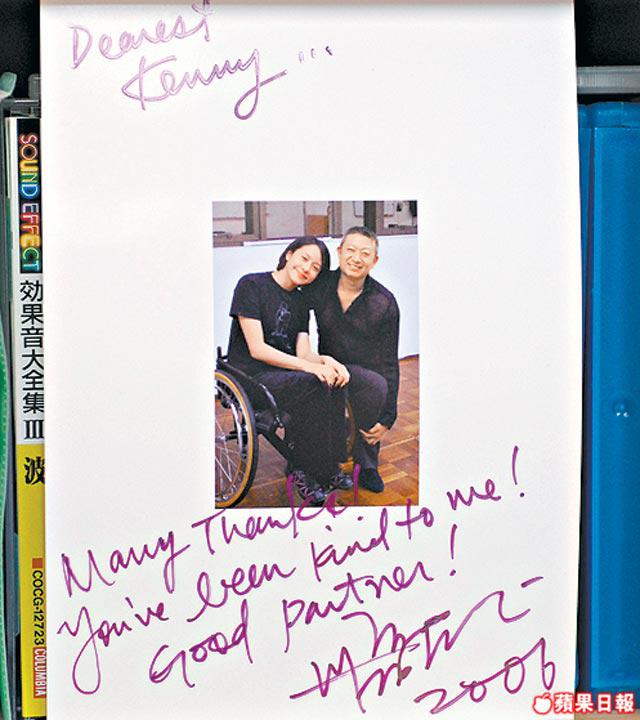 Dearest
Kenny...
SOUND EFFECT
効果音大全集 III
波
COCG-12723 COLUMBIA
Many Thanks!
You've been kind to me!
Good partner!
2006
蘋果日報